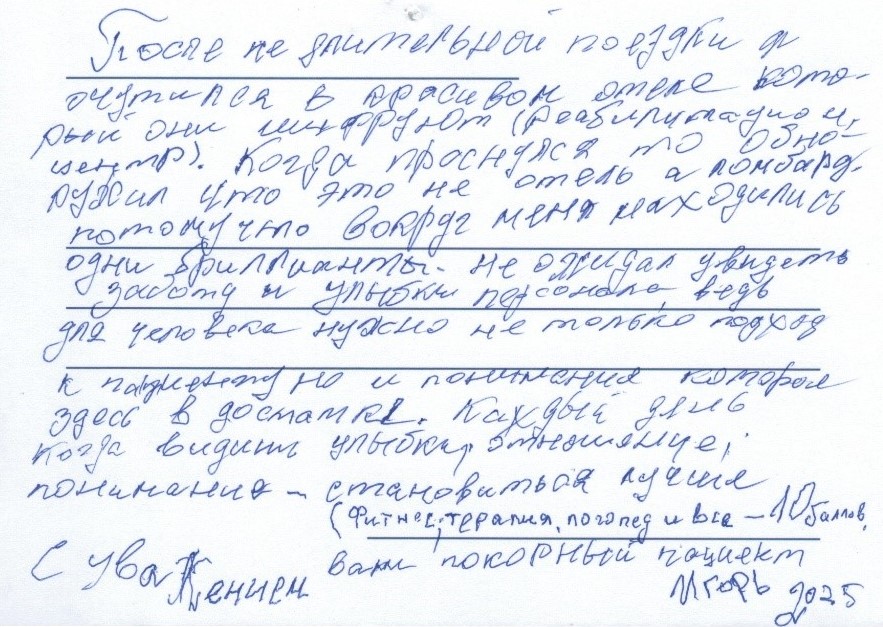 После не длительной поездки я
очутился в красивом отеле кото-
рый они шифруют (Реабилитацион,
центр). Когда проснулся то обна-
ружил что это не отель а ломбард
потому что вокруг меня находились
одни бриллианты. не ожидал увидеть
заботу и улыбки персонала ведь
для человека нужно не только подход
к пациенту но и понимания которое
здесь в достатке. Каждый день
когда видишь улыбки, отношение,
понимание - становиться лучше
(Фитнес, терапия, логопед и все - 10 баллов,
С уважением ваш покорный пациент
Игорь 2025